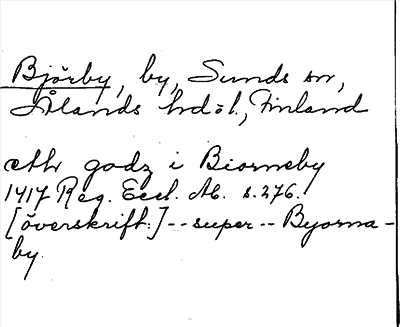 Björby, by, Sunds sn,
Ålands hd o l., Finland
eth godz i Biorneby
1417 Reg. Eccl. Ab. s. 276.
[överskrift:] -- super -- Byorna-
by.